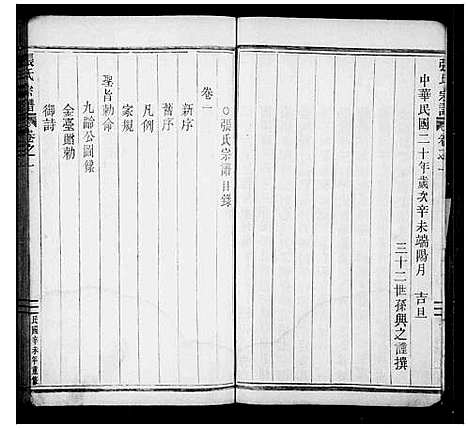 張氏宗譜 卷之一
中華民國二十年歲次辛未端陽月 吉旦
三十二世孫興之謹撰
○張氏宗譜目錄
卷一
新序
舊序
凡例
家規
聖旨勅命
九齡公圖像
金臺館勅
御詩
張氏宗譜 卷之一
民國辛未年重修